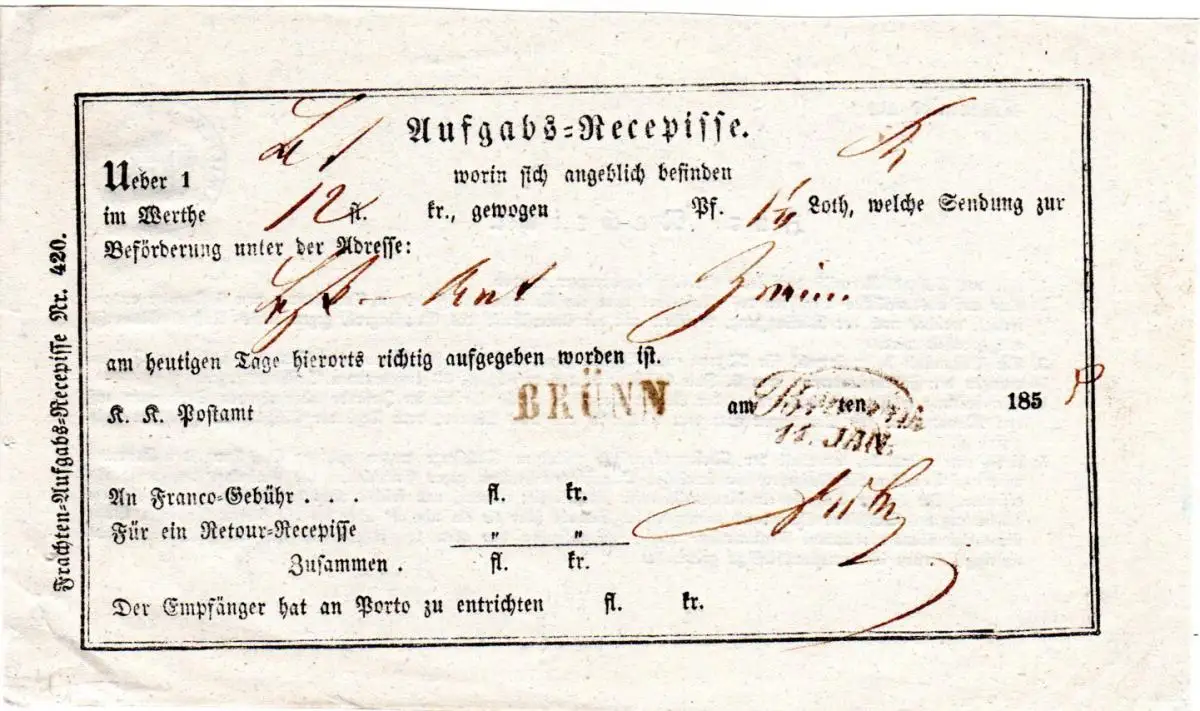 Aufgabs=Recepisse.
Ueber 1 worin sich angeblich befinden
im Werthe 12 fl. kr., gewogen Pf. Loth, welche Sendung zur
Beförderung unter der Adresse:
am heutigen Tage hierorts richtig aufgegeben worden ist.
K. K. Postamt BRÜNN am ten 185
11. JAN.
An Franco=Gebühr . . . fl. kr.
Für ein Retour=Recepisse " "
Zusammen . fl. kr.
Der Empfänger hat an Porto zu entrichten fl. kr.
Frachten=Aufgabs=Recepisse Nr. 420.